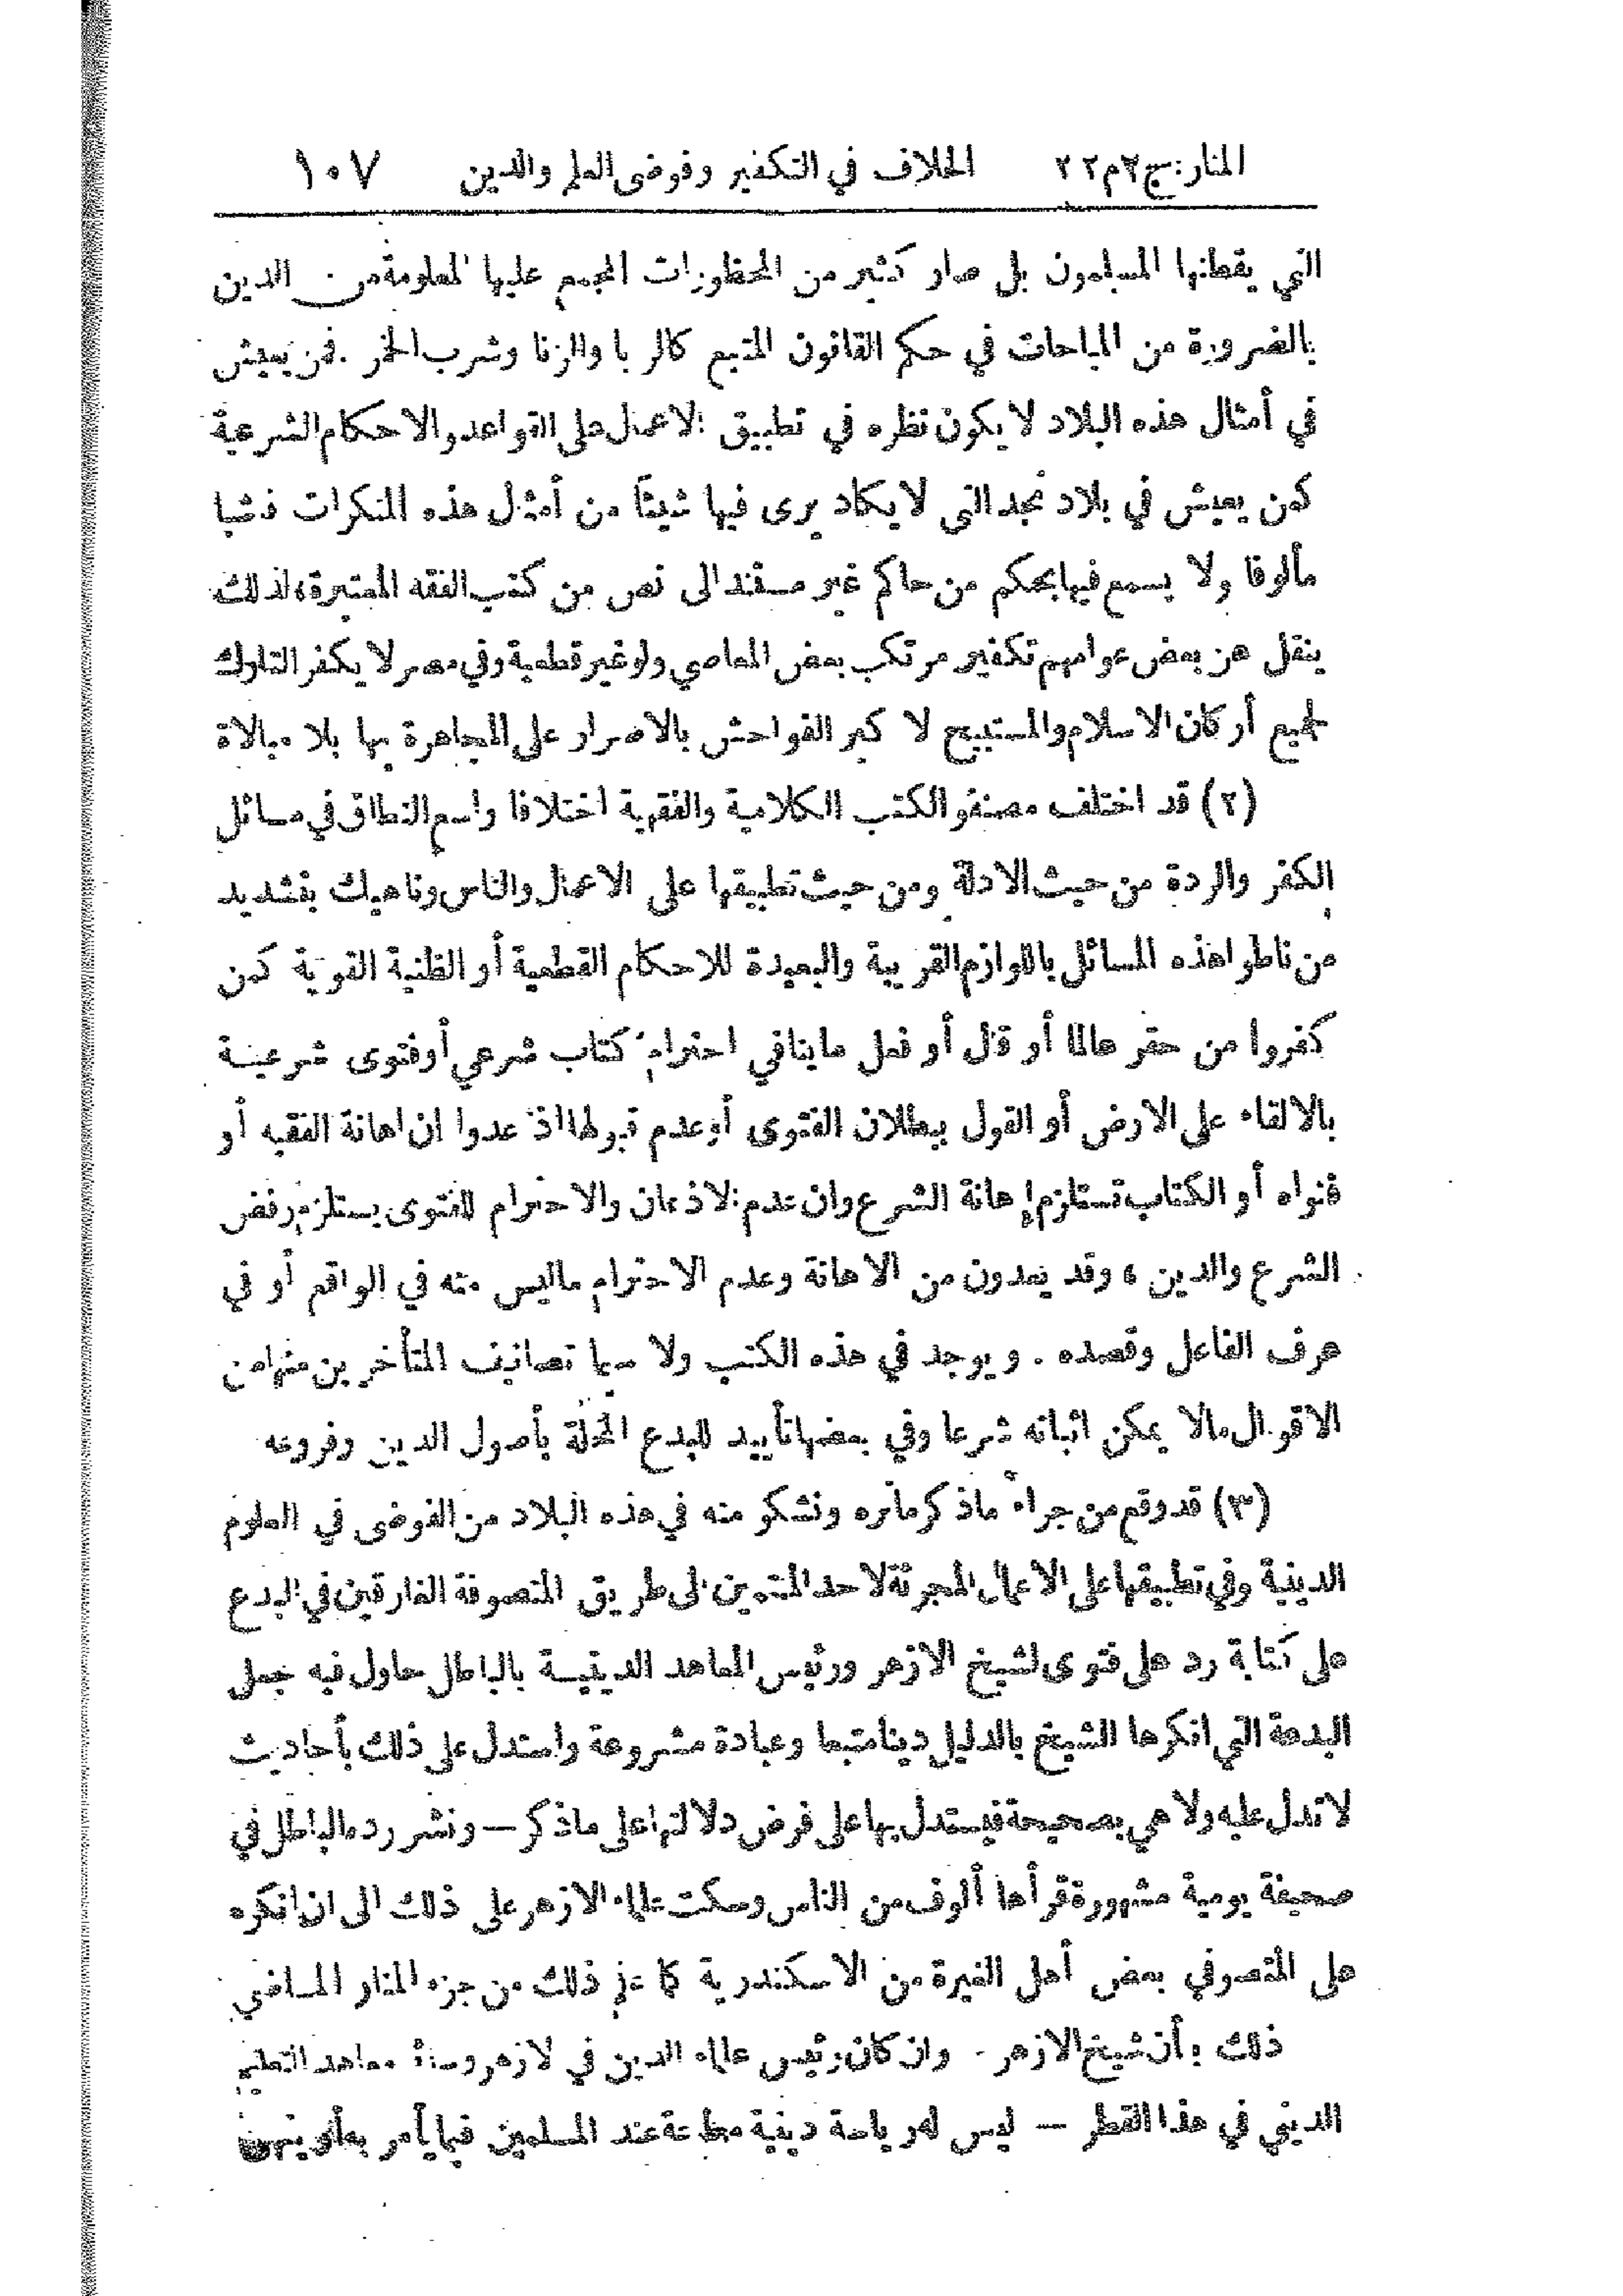 المنار: ج٢م٢٢ الخلاف في التكفير وفوضى العلم والدين ١٠٧
التي يقطنها المسلمون بل صار كثير من المحظورات المجمع عليها المعلومة من الدين
بالضرورة من المباحات في حكم القانون المتبع كالربا والزنا وشرب الخمر . فمن يعيش
في أمثال هذه البلاد لا يكون نظره في تطبيق الاعمال على القواعد والاحكام الشرعية
كمن يعيش في بلاد نجد التي لا يكاد يرى فيها شيئاً من أمثال هذه المنكرات فشيا
مألوفا ولا يسمع فيها بحكم من حاكم غير مستند الى نص من كتب الفقه المعتبرة، لذلك
ينقل عن بعض عوامهم تكفير مرتكب بعض المعاصي ولو غير قطعية وفي مصر لا يكفر التارك
لجميع أركان الاسلام والمستبيح لا كبر الفواحش بالاصرار على المجاهرة بها بلا مبالاة
(٢) قد اختلف مصنفو الكتب الكلامية والفقهية اختلافا واسع النطاق في مسائل
الكفر والردة من حيث الادلة ومن حيث تطبيقها على الاعمال والناس وناهيك بتشديد
من ناطوا هذه المسائل باللوازم القريبة والبعيدة للاحكام القطعية أو الظنية القوية كمن
كفروا من حقر عالما أو قال أو فعل ما ينافي احترام كتاب شرعي أو فتوى شرعية
بالالقاء على الارض أو القول ببطلان الفتوى أو عدم قبولها اذ عدوا ان اهانة الفقيه أو
فتواه أو الكتاب تستلزم إهانة الشرع وان عدم الاذعان والاحترام للفتوى يستلزم رفض
الشرع والدين ، وقد يعدون من الاهانة وعدم الاحترام ما ليس منه في الواقع أو في
عرف الفاعل وقصده . ويوجد في هذه الكتب ولا سيما تصانيف المتأخرين منها من
الاقوال مالا يمكن اثباته شرعا وفي بعضها تأييد للبدع المخلة بأصول الدين وفروعه
(٣) قد وقع من جراء ماذكر مانره ونشكو منه في هذه البلاد من الفوضى في العلوم
الدينية وفي تطبيقها على الاعمال المجرئة لاحد المنتمين الى طريق المتصوفة الغارقين في البدع
على كتابة رد على فتوى لشيخ الازهر ورئيس المعاهد الدينية بالباطل حاول فيه جعل
البدعة التي انكرها الشيخ بالدليل دينا متبعا وعبادة مشروعة واستدل على ذلك بأحاديث
لا تدل عليه ولا هي بصحيحة فيستدل بها على فرض دلالتها على ماذكر — ونشر رده الباطل في
صحيفة يومية مشهورة قرأها ألوف من الناس وسكت علماء الازهر على ذلك الى ان انكره
على المتصوفي بعض أهل الغيرة من الاسكندرية كما علم ذلك من جزء المنار الماضي
ذلك بأن شيخ الازهر - وان كان رئيس علماء الدين في لازهر وسائر معاهد التعليم
الديني في هذا القطر — ليس له رياسة دينية مطاعة عند المسلمين فيما يأمر به أو ينهى